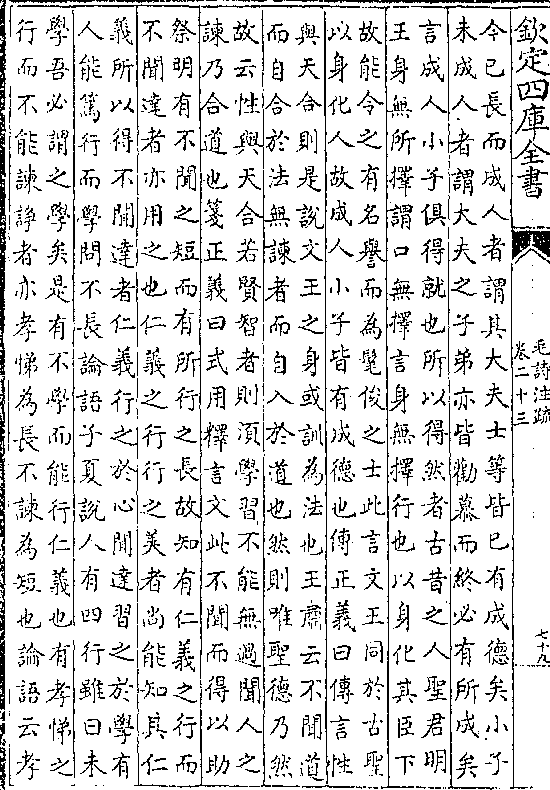 欽定四庫全書
毛詩注疏
卷二十三
七十九
今已長而成人者謂其大夫士等皆已有成德矣小子
未成人者謂大夫之子弟亦皆勸慕而終必有所成矣
言成人小子俱得就也所以得然者古昔之人聖君明
王身無所擇謂口無擇言身無擇行也以身化其臣下
故能令之有名譽而為髦俊之士此言文王同於古聖
以身化人故成人小子皆有成德也傳正義曰傳言性
與天合則是說文王之身或訓為法也王肅云不聞道
而自合於法無諫者而自入於道也然則唯聖德乃然
故云性與天合若賢智者則須學習不能無過聞人之
諫乃合道也箋正義曰式用釋言文此不聞而得以助
祭明有不聞之短而有所行之長故知有仁義之行而
不聞達者亦用之也仁義之行行之美者尚能知其仁
義所以得不聞達者仁義行之於心聞達習之於學有
人能篤行而學問不長論語子夏說人有四行雖曰未
學吾必謂之學矣是有不學而能行仁義也有孝悌之
行而不能諫諍者亦孝悌為長不諫為短也論語云孝